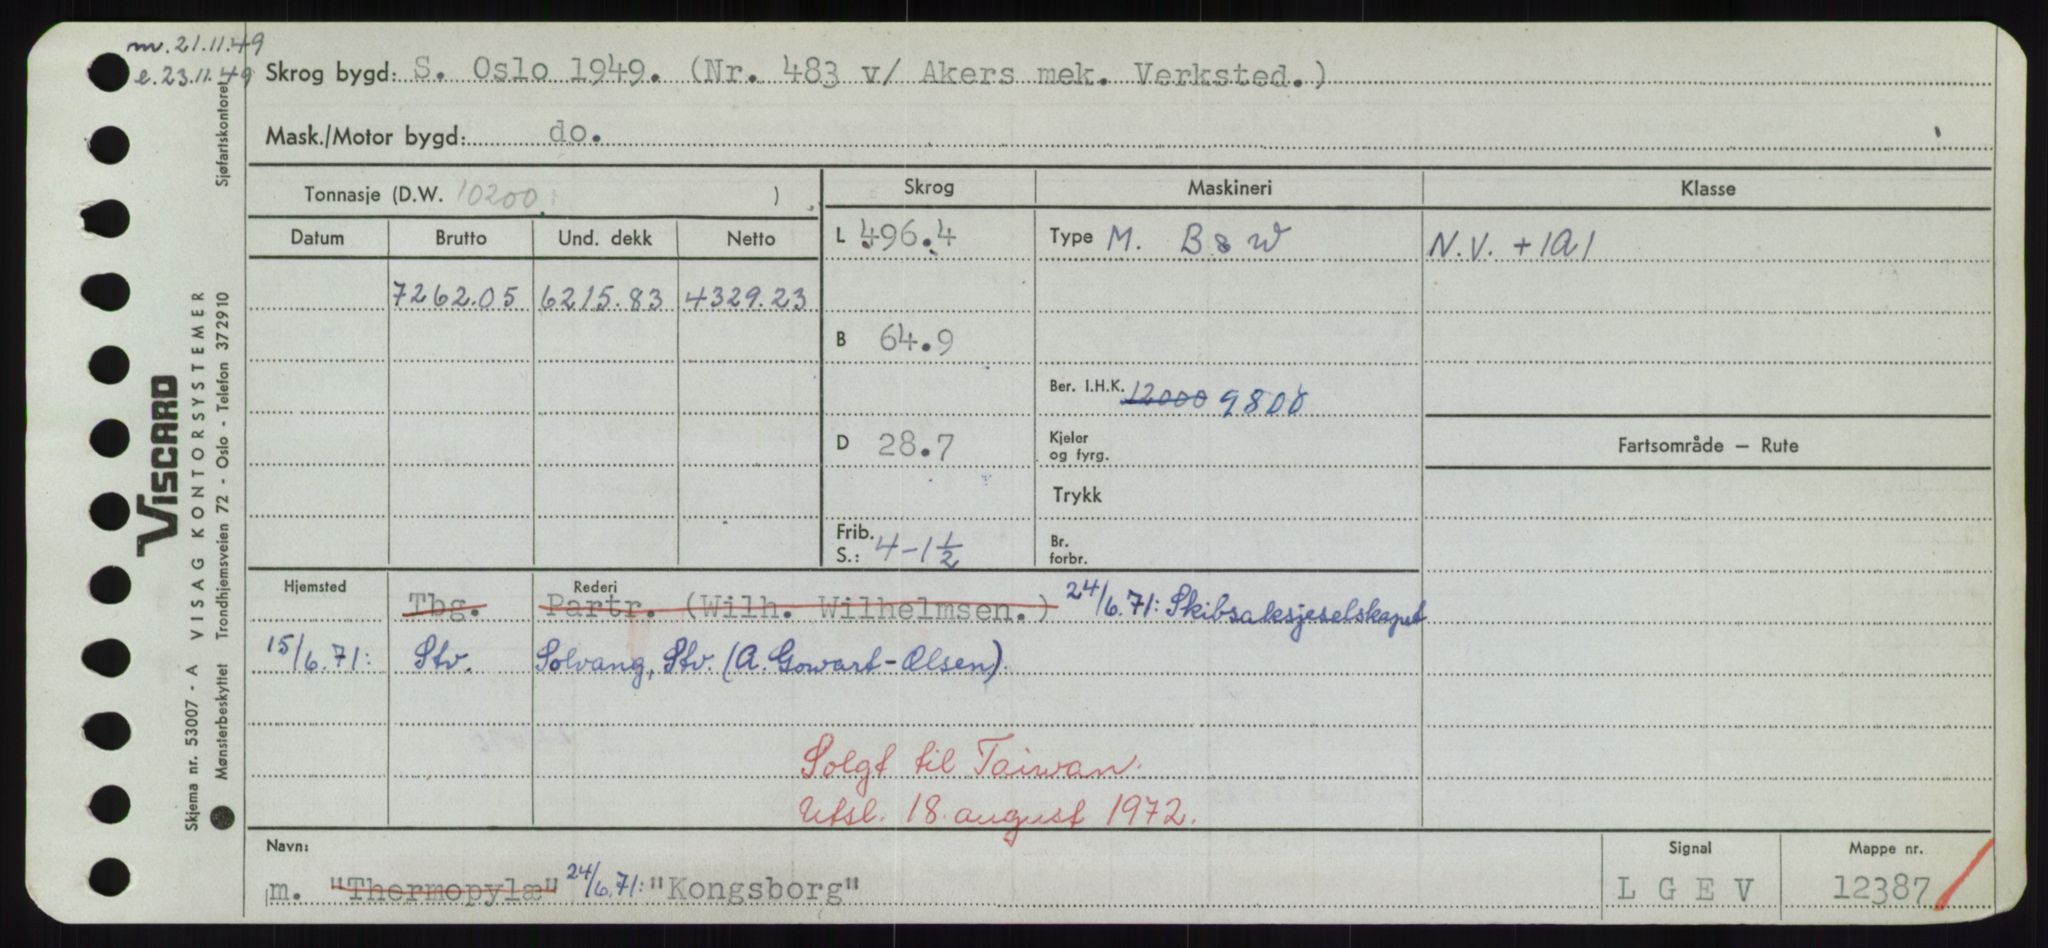 m. 21.11.49
e. 23.11.49
Skrog bygd: S. Oslo 1949. (Nr. 483 v/ Akers mek. Verksted.)
Mask./Motor bygd: do.
Tonnasje (D.W. 10200 )
Skrog
Maskineri
Klasse
Datum Brutto Und. dekk Netto
L 496.4
Type M. B & W
N.V. +1A1
7262.05 6215.83 4329.23
B 64.9
Ber. I.H.K. 12000 9800
D 28.7
Kjeler
og fyrg.
Fartsområde — Rute
Trykk
Frib.
S.: 4-1 1/2
Br.
forbr.
Hjemsted Rederi
Tbg. Partr. (Wilh. Wilhelmsen.) 24/6.71: Skibsaksjeselskapet
15/6.71: Stv. Solvang, Stv. (A. Gowart-Olsen).
Solgt til Taiwan.
Utsl. 18. august 1972.
Navn:
m. "Thermopylæ" 24/6.71: "Kongsborg"
Signal
L G E V
Mappe nr.
12387
VISCARD
Skjema nr. 53007 - A VISAG KONTORSYSTEMER
Mønsterbeskyttet Trondhjemsveien 72 - Oslo - Telefon 372910
Sjøfartskontoret